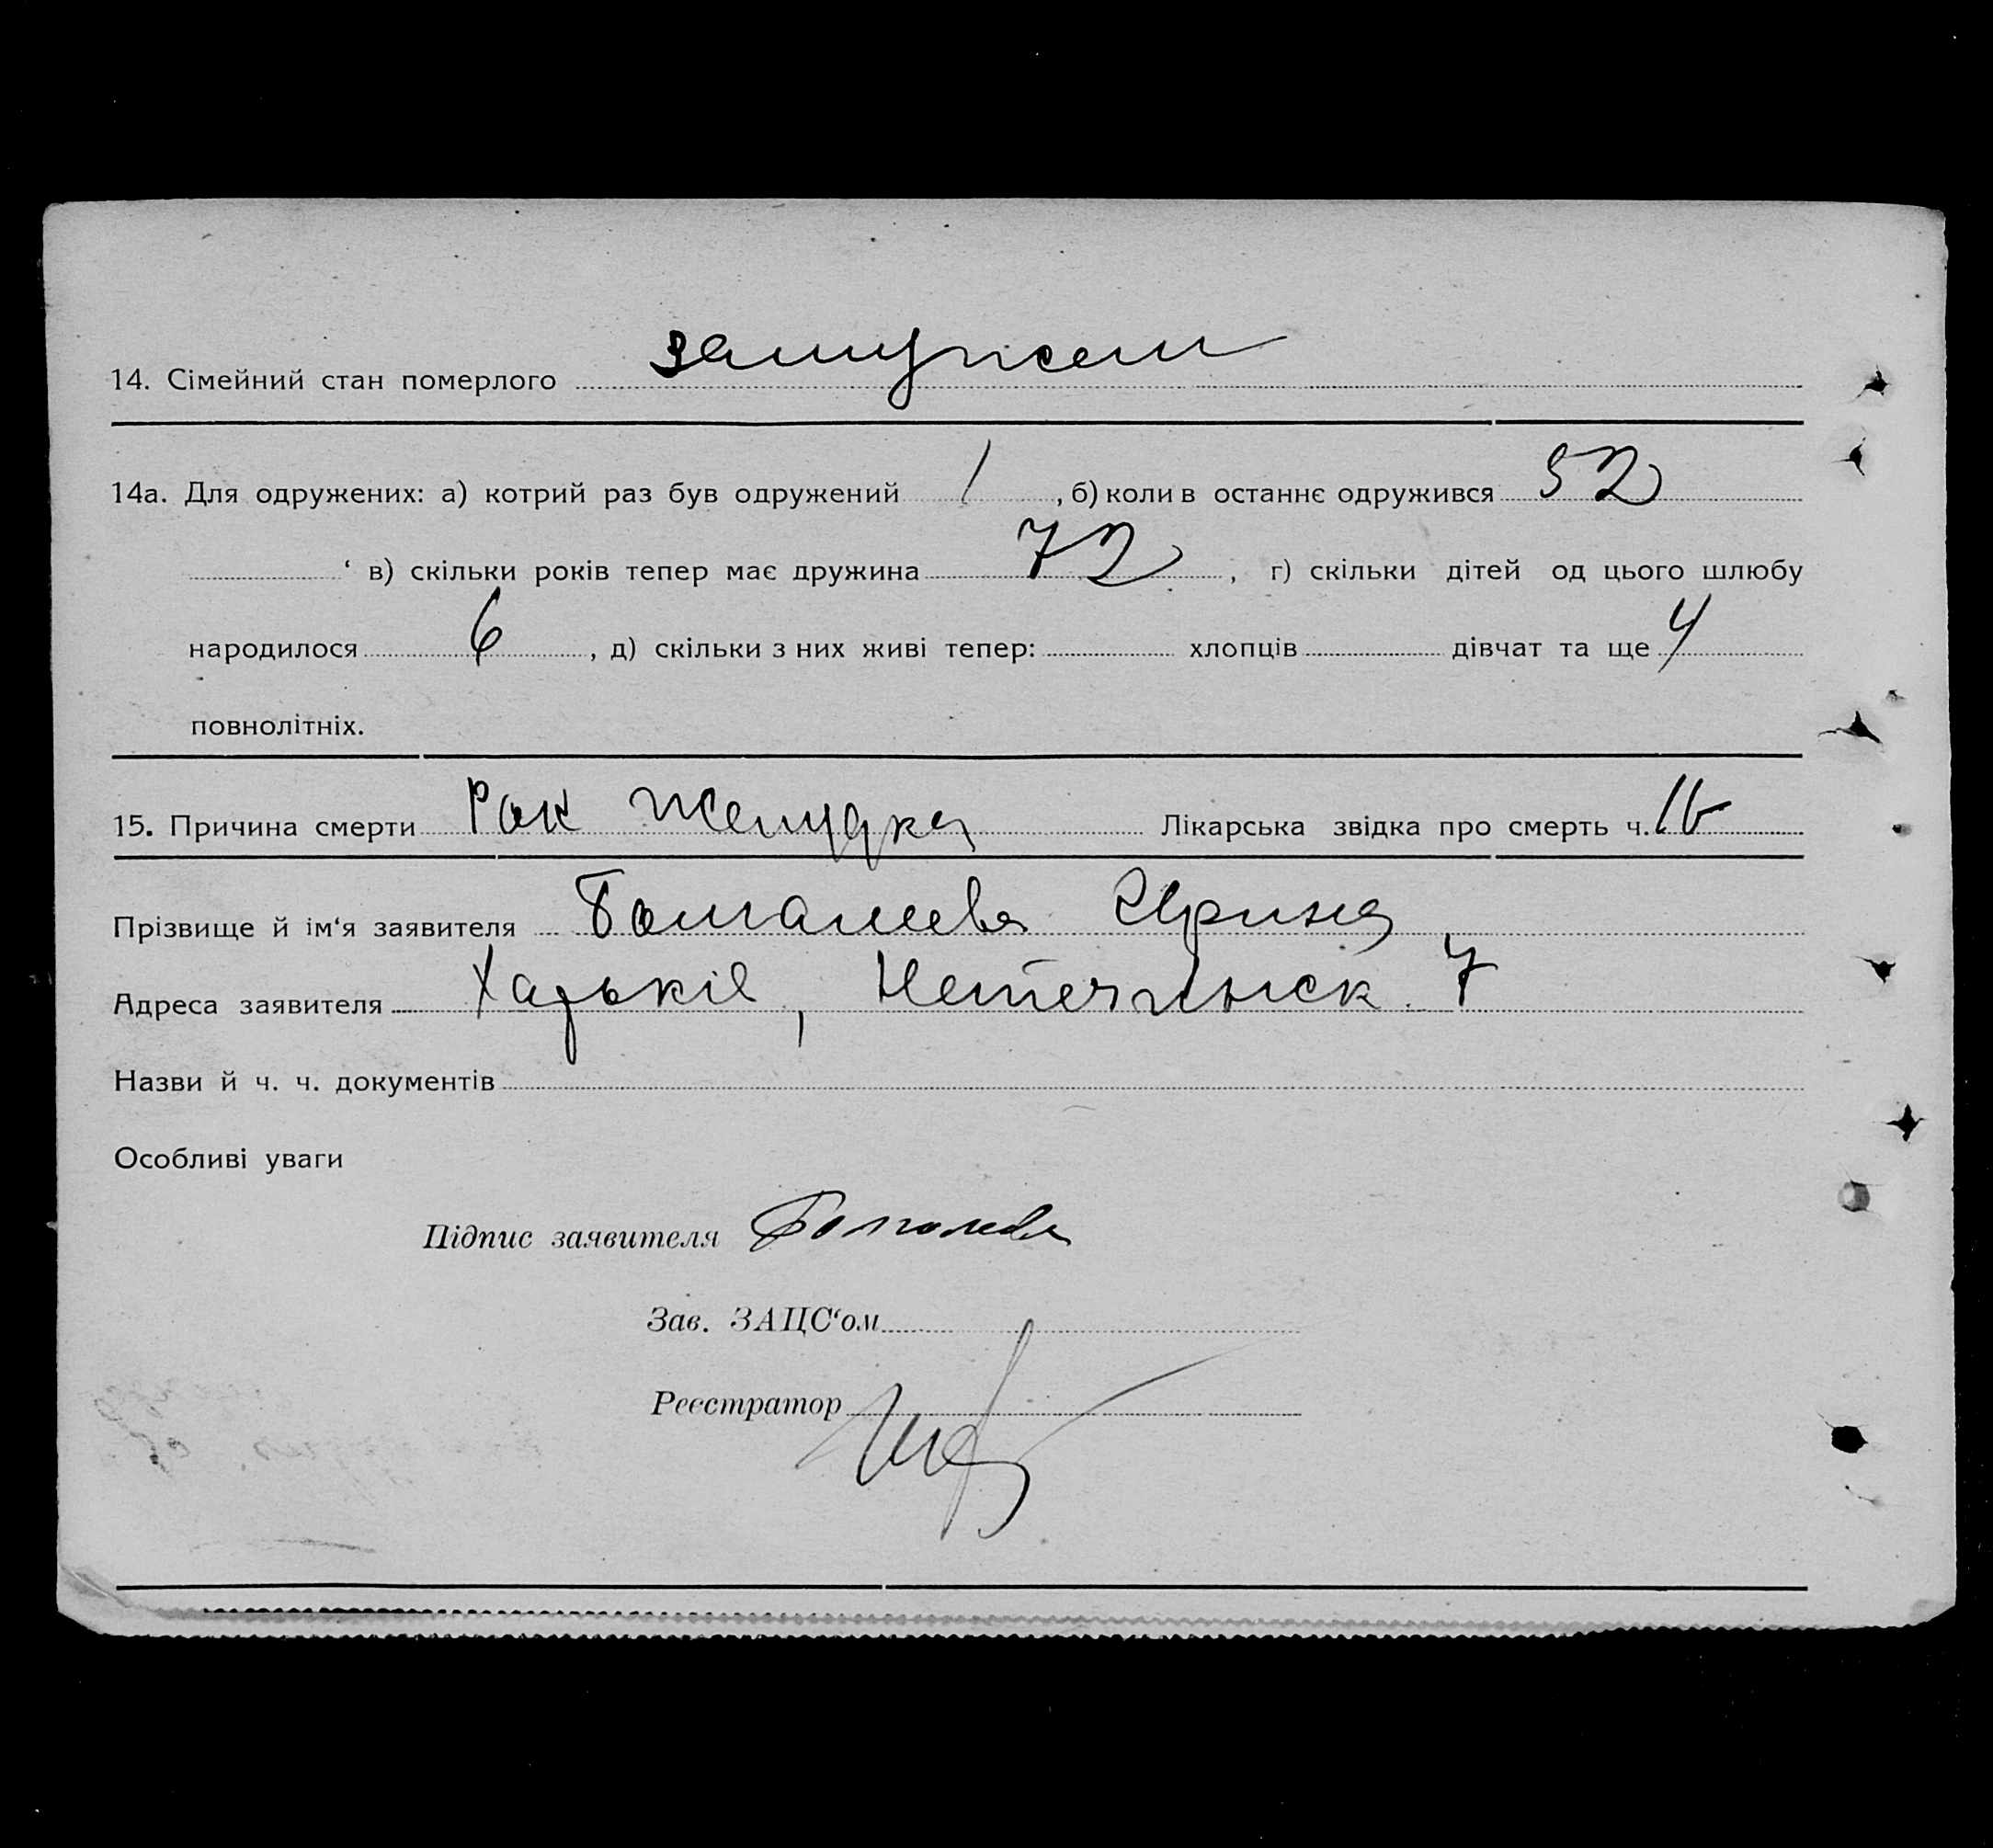 14. Сімейний стан померлого замужем
14а. Для одружених: а) котрий раз був одружений 1, б) коли в останнє одружився 52
‘ в) скільки років тепер має дружина 72, г) скільки дітей од цього шлюбу
народилося 6, д) скільки з них живі тепер: хлопців дівчат та ще 4
повнолітніх.
15. Причина смерти Рак желудка Лікарська звідка про смерть ч.
Прізвище й ім‘я заявителя Ирина
Адреса заявителя Харьків, Нетеченск 7
Назви й ч. ч. документів
Особливі уваги
Підпис заявителя
Зав. ЗАЦС‘ом
Реєстратор